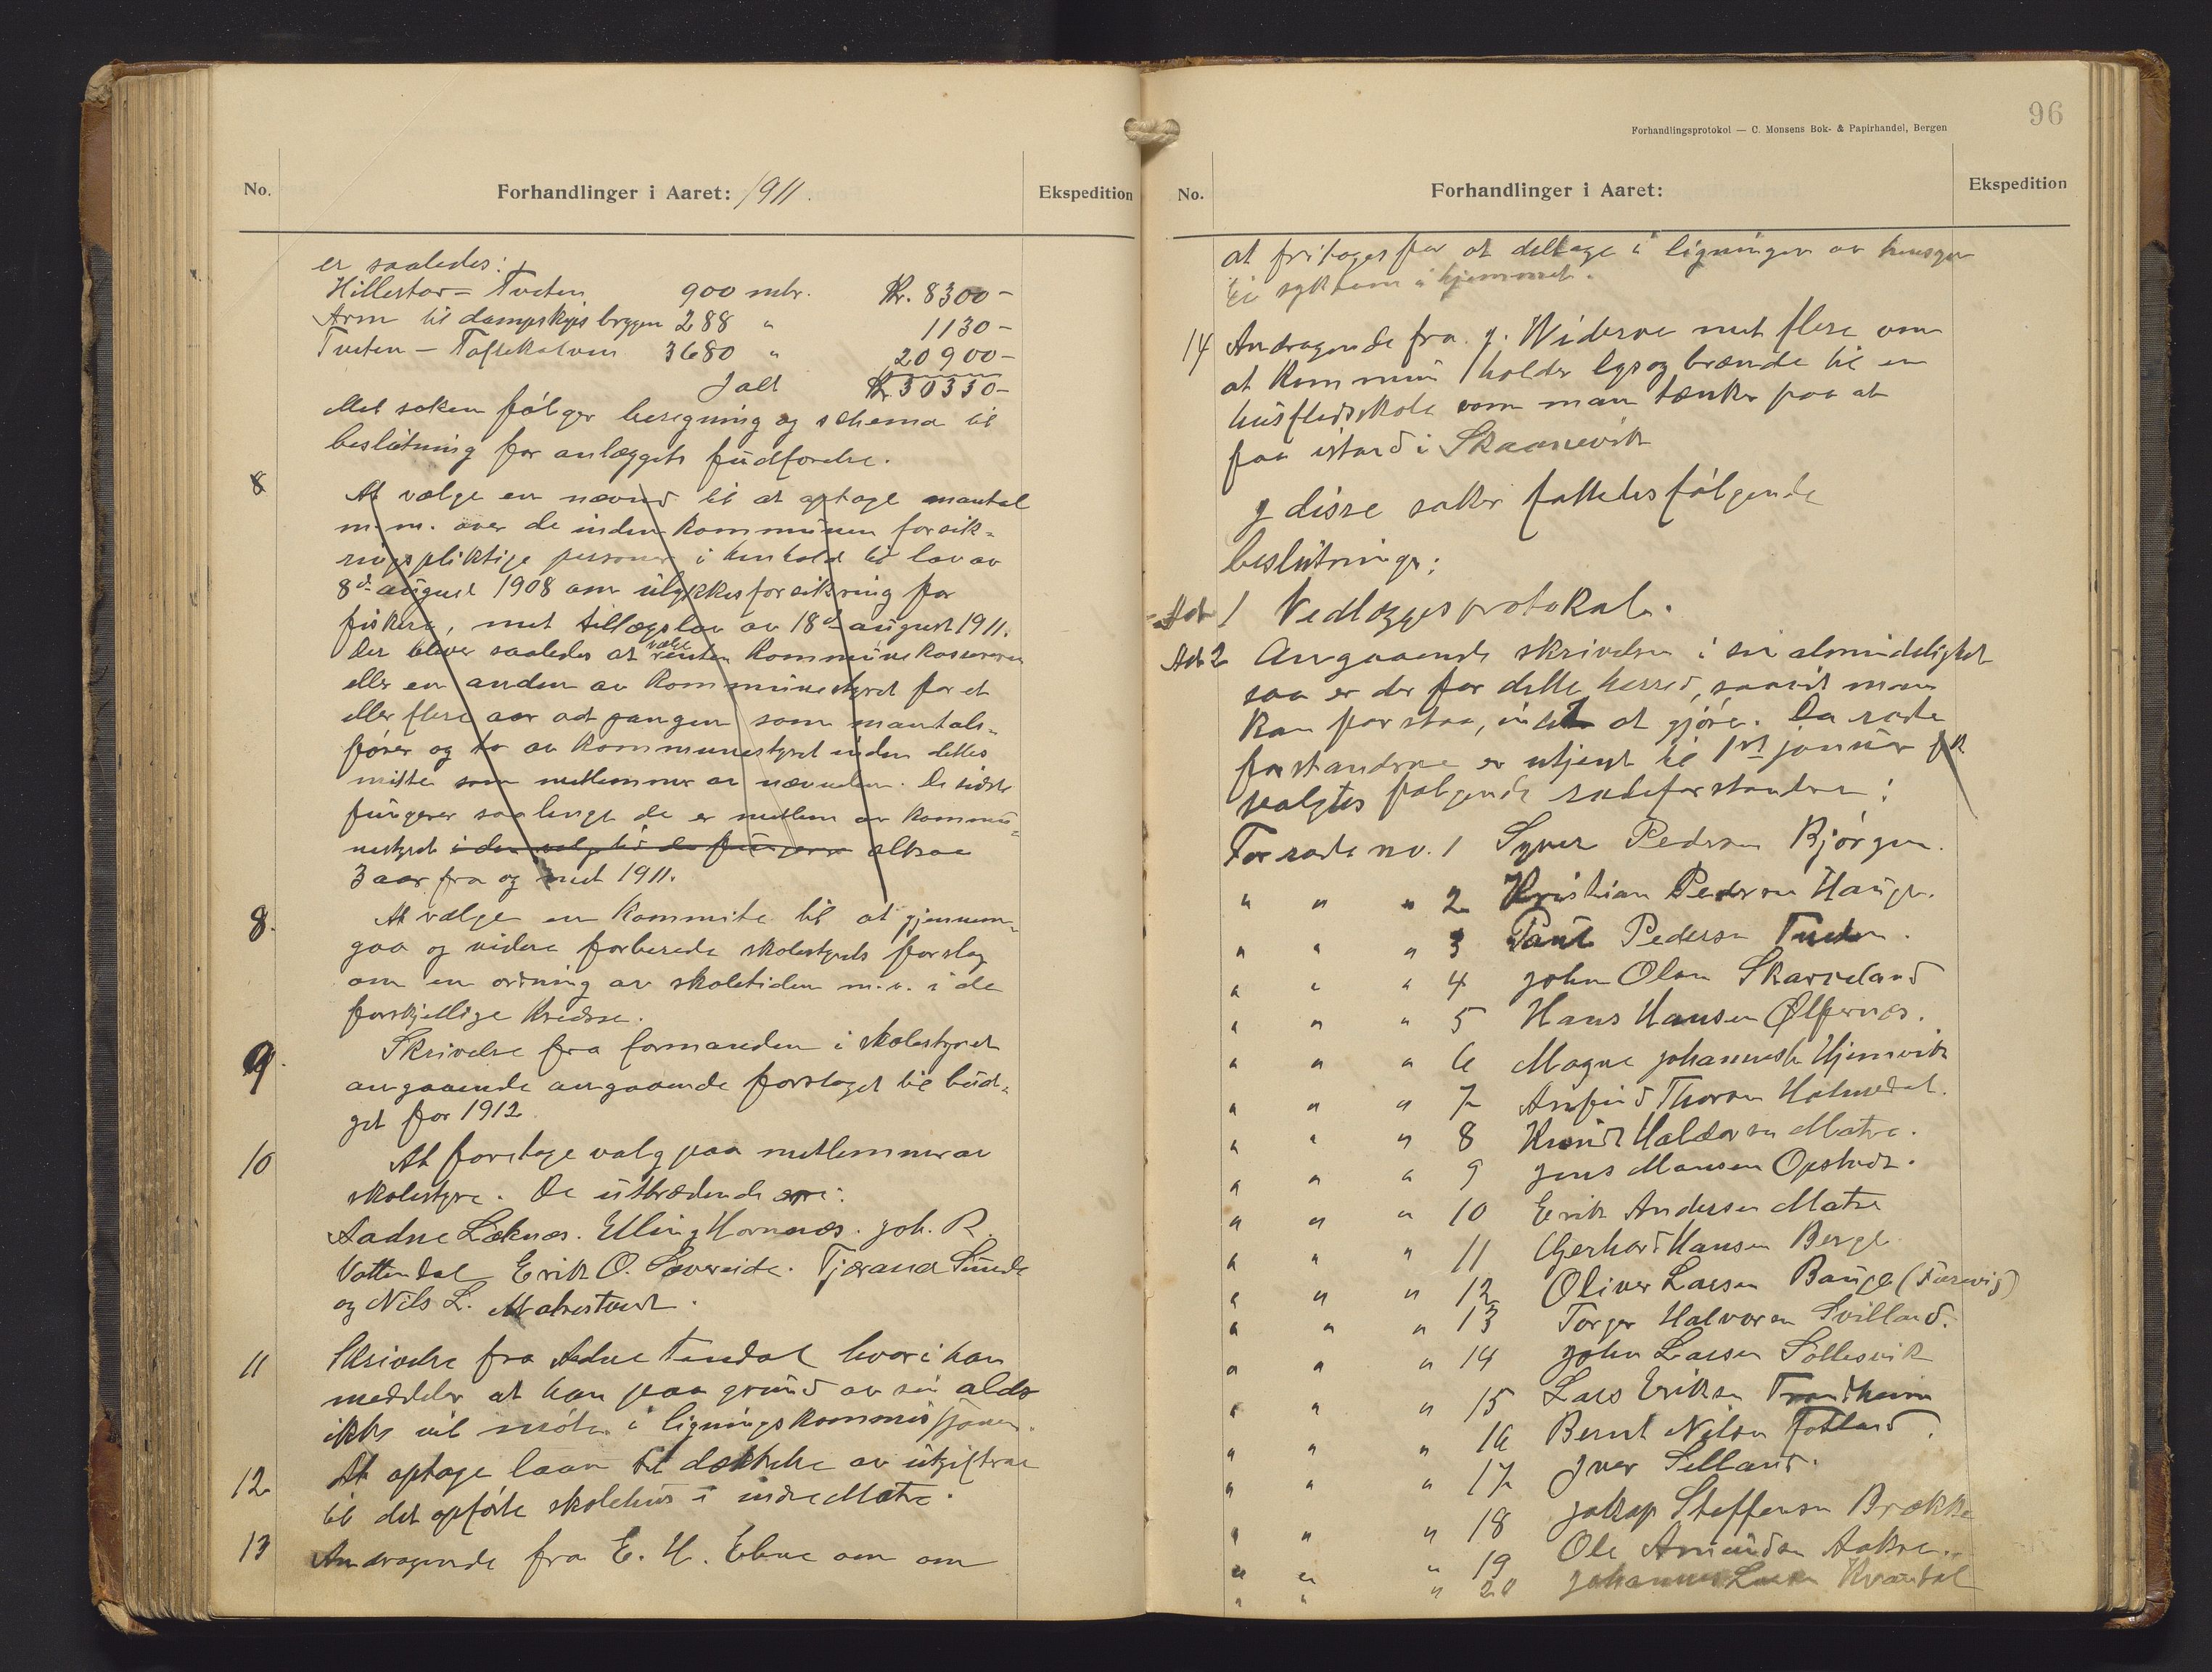 No.
Forhandlinger i Aaret: 1911.
Ekspedition
er saaledes:
Hillestar = Tveten 900 mtr. Kr. 8300 -
Arm til dampskipsbryggen 288 " 1130 -
Tveten - Toftekalven 3680 " 20900 -
Ialt Kr. 30330 -
Med saken følger beregning og schema til
beslutning for anlæggets fudførelse.
8 At vælge en nævnd til at optage mantal
m.m. over de inden kommunen forsik-
ringspliktige personer i henhold til lov av
8de august 1908 om ulykkesforsikring for
fiskere, med tillægslov av 18de august 1911.
Der bliver saaledes at vælge enten kommunekassereren
eller en anden av kommunestyret for et
eller flere aar ad gangen som mantals-
fører og to av kommunestyret inden dettes
mitte som medlemmer av nævnden. De sidste
fungerer saalenge de er medlem av kommu-
nestyret i den valgtid de fungerer altsaa
3 aar fra og med 1911.
8. At vælge en kommite til at gjennem-
gaa og videre forberede skolestyrets forslag
om en ordning av skoletiden m.v. i de
forskjellige kredse.
9. Skrivelse fra formanden i skolestyret
angaaende angaaende forslaget til bud-
get for 1912.
10 At foretage valg paa medlemmer av
skolestyre. De uttrædende er:
Aadne Læknes. Elling Hornnes. Joh. R.
Vattendal Erik O. Sævereide. Tjærand Sunde
og Nils L. Matrestvedt.
11 Skrivelse fra Aadne Tundal hvori han
meddeler at han paa grund av sin alder
ikke vil møte i ligningskommissjonen.
12 At optage laan til dækkelse av utgifterne
til det opførte skolehus i indre Matre.
13 Andragende fra E. H. Ebne om om
96
Forhandlingsprotokol — C. Monsens Bok- & Papirhandel, Bergen
No.
Forhandlinger i Aaret:
Ekspedition
at fritages for at deltage i ligningen av hensyn
til sykdom i hjemmet.
14 Andragende fra J. Widerøe med flere om
at kommunen holder lys og brænde til en
husflidsskole som man tænker paa at
faa istand i Skaanevik
I disse saker fattedes følgende
beslutninger:
Ad 1 Vedlægges protokolen.
Ad 2 Angaaende skrivelsen i sin almindelighet
saa er der for dette herred, saavidt man
kan forstaa, intet at gjøre. Da rode
forstanderne er utjent til 1st januar fk
valgtes følgende rodeforstandere:
For rode no. 1 Sjur Pedersen Bjørgen.
" " " 2 Kristian Pedersen Hauge.
" " " 3 Paul Pedersen Tveten.
" " " 4 John Olsen Skarveland
" " " 5 Hans Hansen Ølfernes.
" " " 6 Magne Johannesen Utjemvik
" " " 7 Arnfind Thorsen Holmedal.
" " " 8 Knudt Haldorsen Matre.
" " " 9 Jens Monsen Opstvedt.
" " " 10 Erik Andersen Matre
" " " 11 Gjerhard Hansen Berge
" " " 12 Oliver Larsen Bauge (Turvig)
" " " 13 Torger Halvorsen Svilland.
" " " 14 John Larsen Sollesvik
" " " 15 Lars Eriksen Trondheim
" " " 16 Bernt Nilsen Fatland.
" " " 17 Iver Silland.
" " " 18 Jakop Steffensen Brække
" " " 19 Ole Amundsen Aakre.
" " " 20 Johannes Larsen Kvandal